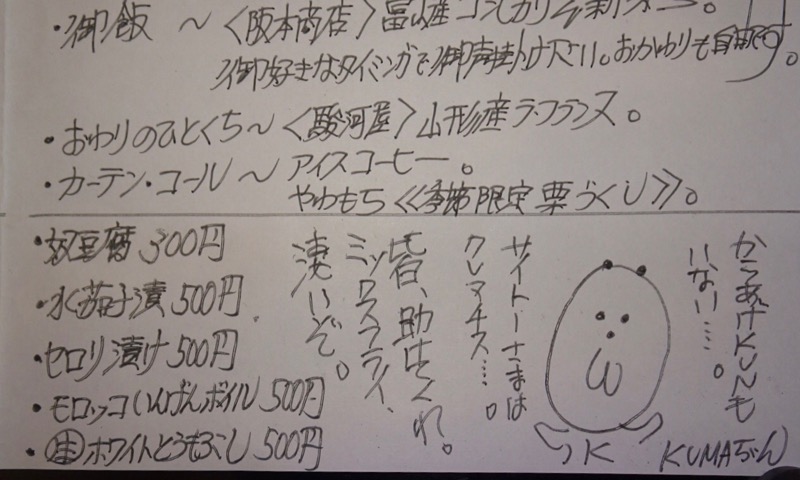 ・御飯 ～〈阪本商店〉富山産コシヒカリ
御好きなタイミングで御声掛け下さい。おかわりも自由です。
・おわりのひとくち～〈駿河屋〉山形産ラ・フランス。
・カーテン・コール ～ アイスコーヒー。
やわもち《季節限定 栗づくし》。
・奴豆腐 300円
・水茄子漬 500円
・セロリ漬け 500円
・モロッコいんげんボイル 500円
・㊤ホワイトとうもろこし 500円
からあげKUNも
いない……。
サイトーさまは
クレマチス……。
昔、助けてくれ。
ミックスフライ、
凄いぞ。
K
KUMAちゃん